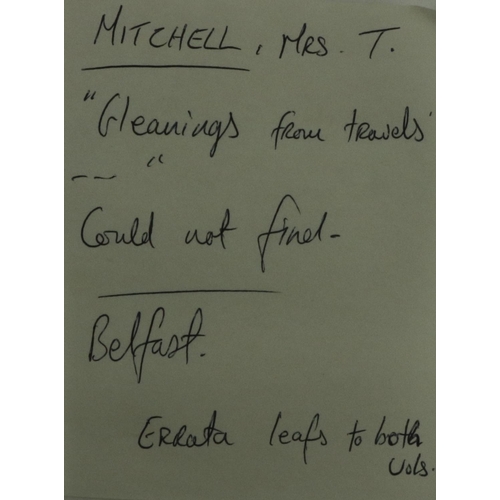 MITCHELL, MRS. T.
"Gleanings from travels'
-- "
Could not find-
Belfast.
ERRata leafs to both
Vols.